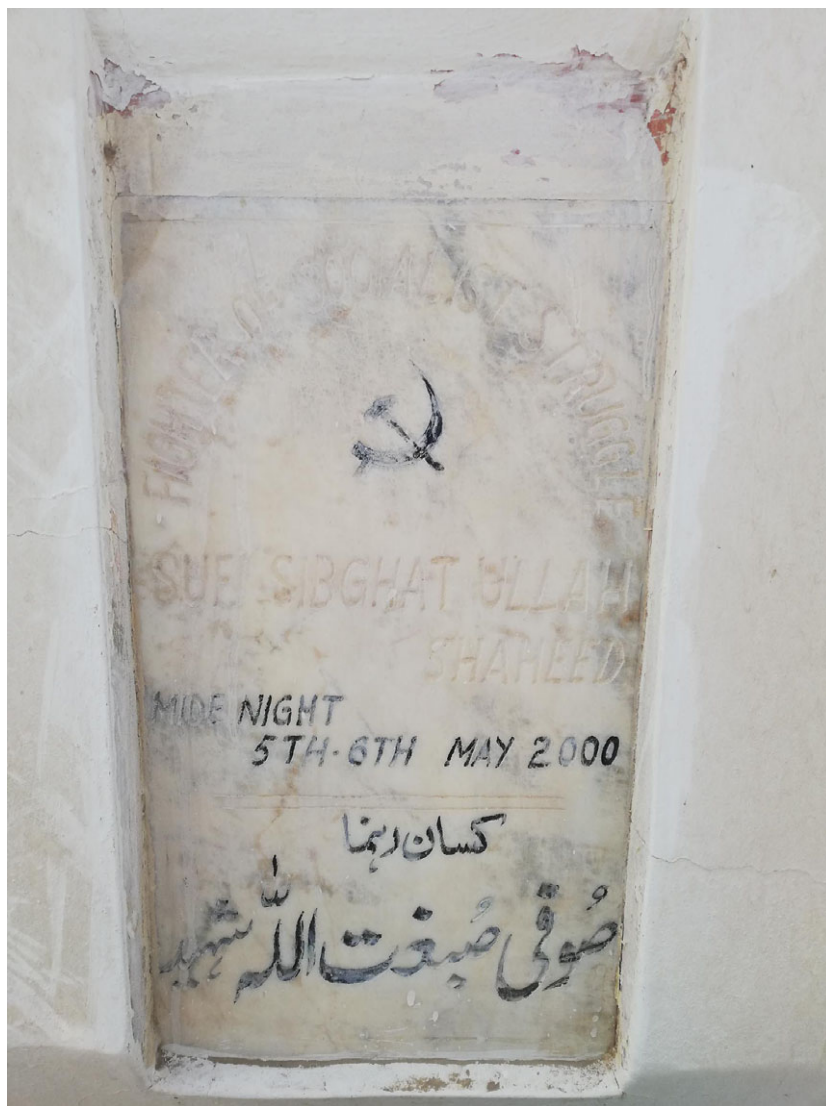 FIGHTER OF SOCIALIST STRUGGLE
SUFI SIBGHAT ULLAH
SHAHEED
MIDE NIGHT
5TH-6TH MAY 2000
کسان رہنما
صُوفی صُبغت اللہ شہید